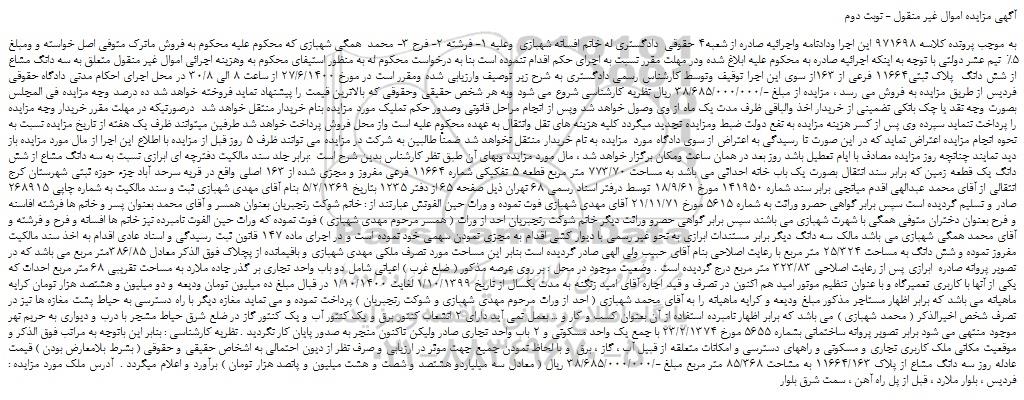 آگهی مزایده اموال غیر منقول - نوبت دوم
به موجب پرونده کلاسه 971698 این اجرا ودادنامه واجرائیه صادره از شعبه4 حقوقی دادگستری له خانم افسانه شهبازی وعلیه 1- فرشته 2- فرح 3- محمد همگی شهبازی که محکوم علیه محکوم به فروش ماترک متوفی اصل خواسته و ومبلغ
7/5 نیم عشر دولتی با توجه به اینکه اجرائیه صادره به محکوم علیه ابلاغ شده ودر مهلت مقرر نسبت به اجرای حکم اقدام ننموده است بنا به درخواست محکوم له به منظور استیفای محکوم به وهزینه اجرائی اموال غیر منقول متعلق به سه دانگ مشاع
از شش دانگ پلاک ثبتی11664 فرعی از 163از سوی این اجرا توقیف وتوسط کارشناس رسمی دادگستری به شرح زیر توصیف وارزیابی شده ومقرر است در مورخ 27/6/1400 از ساعت 8 الی 8/30 در محل اجرای احکام مدنی دادگاه حقوقی
فردیس از طریق مزایده به فروش می رسد ، مزایده از مبلغ -/38/685/000/000 ریال نظریه کارشناسی شروع می شود وبه هر شخص حقیقی وحقوقی که بالاترین قیمت را پیشنهاد نماید فروخته خواهد شد ده درصد وجه مزایده فی المجلس
بصورت وجه نقد یا چک بانکی تضمینی از خریدار اخذ والباقی ظرف مدت یک ماه از وی وصول خواهد شد وپس از انجام مراحل قانونی وصدور حکم تملیک مورد مزایده بنام خریدار منتقل خواهد شد درصورتیکه در مهلت مقرر خریدار وجه مزایده
را پرداخت ننماید سپرده وی پس از کسر هزینه مزایده به نفع دولت ضبط ومزایده تجدید میگردد کلیه هزینه های نقل وانتقال به عهده محکوم علیه است واز محل فروش پرداخت خواهد شد طرفین میتوانند ظرف یک هفته از تاریخ مزایده نسبت به
نحوه انجام مزایده اعتراض نماید که در این صورت تا رسیدگی به اعتراض از سوی دادگاه مورد مزایده به نام خریدار منتقل نخواهد شد ضمناً طالبین به شرکت در مزایده می توانند ظرف 5 روز قبل از مزایده با اطلاع این اجرا از مال مورد مزایده باز
دید نمایند چنانچه روز مزایده مصادف با ایام تعطیل باشد روز بعد در همان ساعت ومکان برگزار خواهد شد ، مال مورد مزایده وبهای آن طبق نظر کارشناس بدین شرح است برابر چلد سند مالکیت دفترچه ای ابرازی نسبت به سه دانگ مشاع از شش
دانگ یک قطعه زمین که برابر سند انتقال بصورت یک باب خانه احداثی می باشد به مساحت 772/70 متر مربع قطعه 5 تفکیکی شماره 11664 فرعی مفروز و مجزی شده از 163 اصلی واقع در قریه سرحد آباد جزء حوزه ثبتی شهرستان کرج
انتقالی از آقای محمد عبدالهی اقدم میانجی برابر سند شماره 141950 مورخ 18/9/61 توسط دفتر اسناد رسمی 68 تهران ذیل صفحه 65از دفتر 1235 بتاریخ 5/2/1369 بنام آقای مهدی شهبازی ثبت و سند مالکیت به شماره چاپی 268915
صادر و تسلیم گردیده است سپس برابر گواهی حصرو وراثت به شماره 5615 مورخ 21/11/71 آقای مهدی شهبازی فوت نموده و وراث حین الفوتش عبارتند از : خانم شوکت رنجبریان بعنوان همسر و آقای محمد بعنوان پسر و خانم ها فرشته افسانه
و فرح بعنوان دختران متوفی همگی با شهرت شهبازی می باشند سپس برابر گواهی حصرو وراثت دیگر خانم شوکت رنجبریان احد از وراث ( همسر مرحوم مهدی شهبازی ) فوت نموده که وراث حین الفوت نامبرده نیز خانم ها افسانه و فرح و فرشته و
آقای محمد همگی شهبازی می باشد مالک سه دانگ دیگر برابر مستندات ابرازی به نحو غیر رسمی با دیوار کشی اقدام به مجزی نمودن سهمی خود نموده است و در اجرای ماده 147 قانون ثبت رسیدگی و اسناد عادی اقدام به اخذ سند مالکیت
مفروز نموده و شش دانگ به مساحت 25/324 متر مربع با رعایت اصلاحی بنام آقای حبیب ولی الهی صادر گردیده است بنابر این مساحت مورد تصرف ملکی مهدی شهبازی و باقیمانده از پچلاک فوق الذکر معادل 386/85متر مربع می باشد که در
تصویر پروانه صادره ابرازی پس از رعایت اصلاحی 323/83 متر مربع درج گردیده است . وضعیت موجود در محل : بر روی عرصه مذکور( ضلع غرب ) اعیانی شامل دو باب واحد تجاری بر گذر جاده ملارد به مساحت تقریبی 68 متر مربع احداث که
یکی از آنها با کاربری تعمیرگاه و با عنوان تنظیم موتور امید هم اکنون در تصرف و قید اجاره آقای امید زنگنه به مدت یکسال از تاریخ 1/10/1399 لغایت 1/10/1400 در قبال مبلغ ده میلیون تومان ودیعه و دو میلیون و هشتصد هزار تومان کرایه
ماهیانه می باشد که برابر اظهار مستاجر مذکور مبلغ ودیعه و کرایه ماهیانه را به آقای محمد شهبازی ( احد از وراث مرحوم مهدی شهبازی و شوکت رنجبریان ) پرداخت نموده و می نماید مغازه دیگر با راه دسترسی به حیاط پشت مغازه ها نیز در
تصرف شخص اخیرالذکر ( محمد شهبازی ) می باشد که برابر اظهار نامبرده استفاده از آن بعنوان کسب و کار و ... بعمل نمی آید دارای 2 انشعاب کنتور برق و یک کنتور آب و یک کنتور گاز در ضلع شرق حیاط مشجر با درب و دیواری به حریم نهر
موجود منتهی می شود برابر تصویر پروانه ساختمانی بشماره 5655 مورخ 22/2/1374 با جمع یک واحد مسکونی و 2 باب واحد تجاری صادر ولیکن تاکنون منجر به صدور پایان کار نگردید . نظریه کارشناسی : بنابر این باتوجه به مراتب فوق الذکر و
موقعیت مکانی ملک کاربری تجاری و مسکونی و راههای دسترسی و امکانات متعلقه از قبیل آب ، گاز ، برق و با لحاظ نمودن جمیع جهات موثر در ارزیابی و صرف نظر از دیون احتمالی به اشخاص حقیقی و حقوقی ( بشرط بلامعارض بودن ) قیمت
عادله روز سه دانگ مشاع از پلاک 11664/163 به مساحت 85/368 متر مربع مبلغ -/38/685/000/000 ریال ( معادل سه میلیاردو هشتصد و شصت و هشت میلیون و پانصد هزار تومان ) برآورد و اعلام میگردد . آدرس ملک مورد مزایده :
فردیس ، بلوار ملارد ، قبل از پل راه آهن ، سمت شرق بلوار